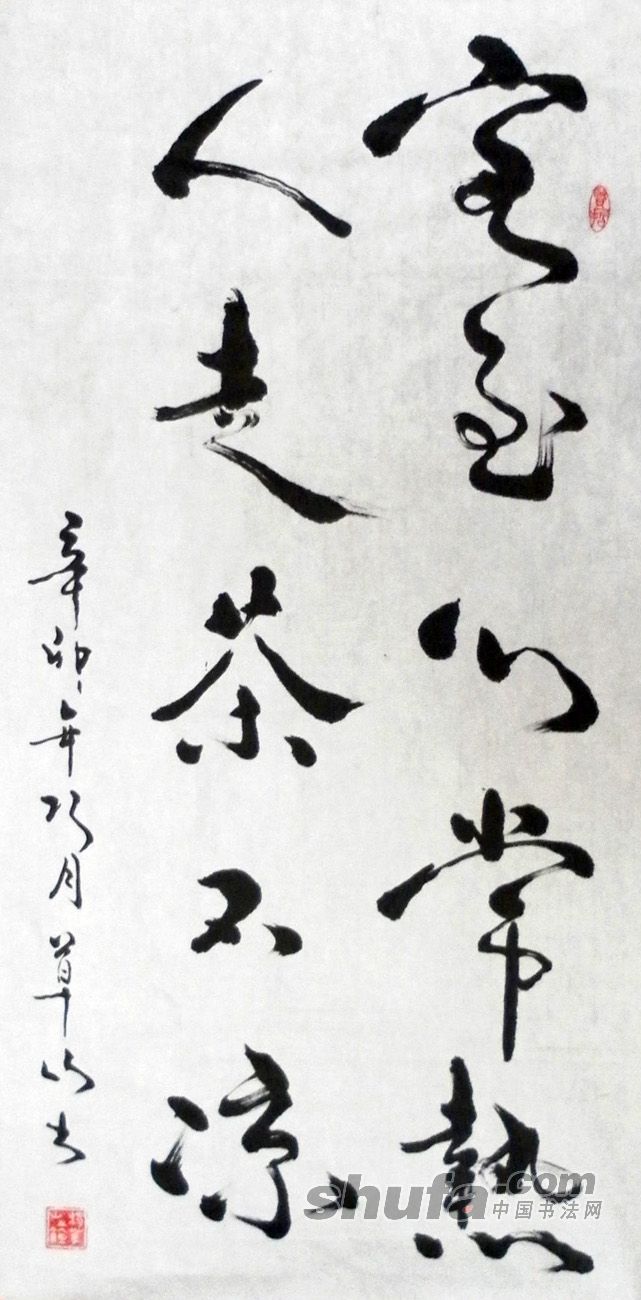 客至心常熱
人走茶不凉
辛卯年巧月草书
shufa.com
中国书法网